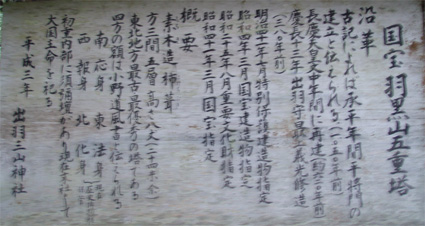 国宝 羽黒山五重塔
沿革
古記によれば承平年間平将門の
建立と伝えられる
長慶天皇文中年間に再建
慶長十三年出羽守最上義光修造
明治四十一年七月特別保護建造物指定
昭和四年三月国宝建造物指定
昭和二十五年八月重要文化財指定
昭和四十一年三月国宝指定
概要
素木造 杮葺
方三間五層 高さ八丈
東北地方最古最優秀の塔である
四方の額は小野道風書と伝えられる
南 応身 東 法身
西 報身 北 化身
初重内部に須弥壇があり現在末社として
大国主命を祀る
平成三年 出羽三山神社